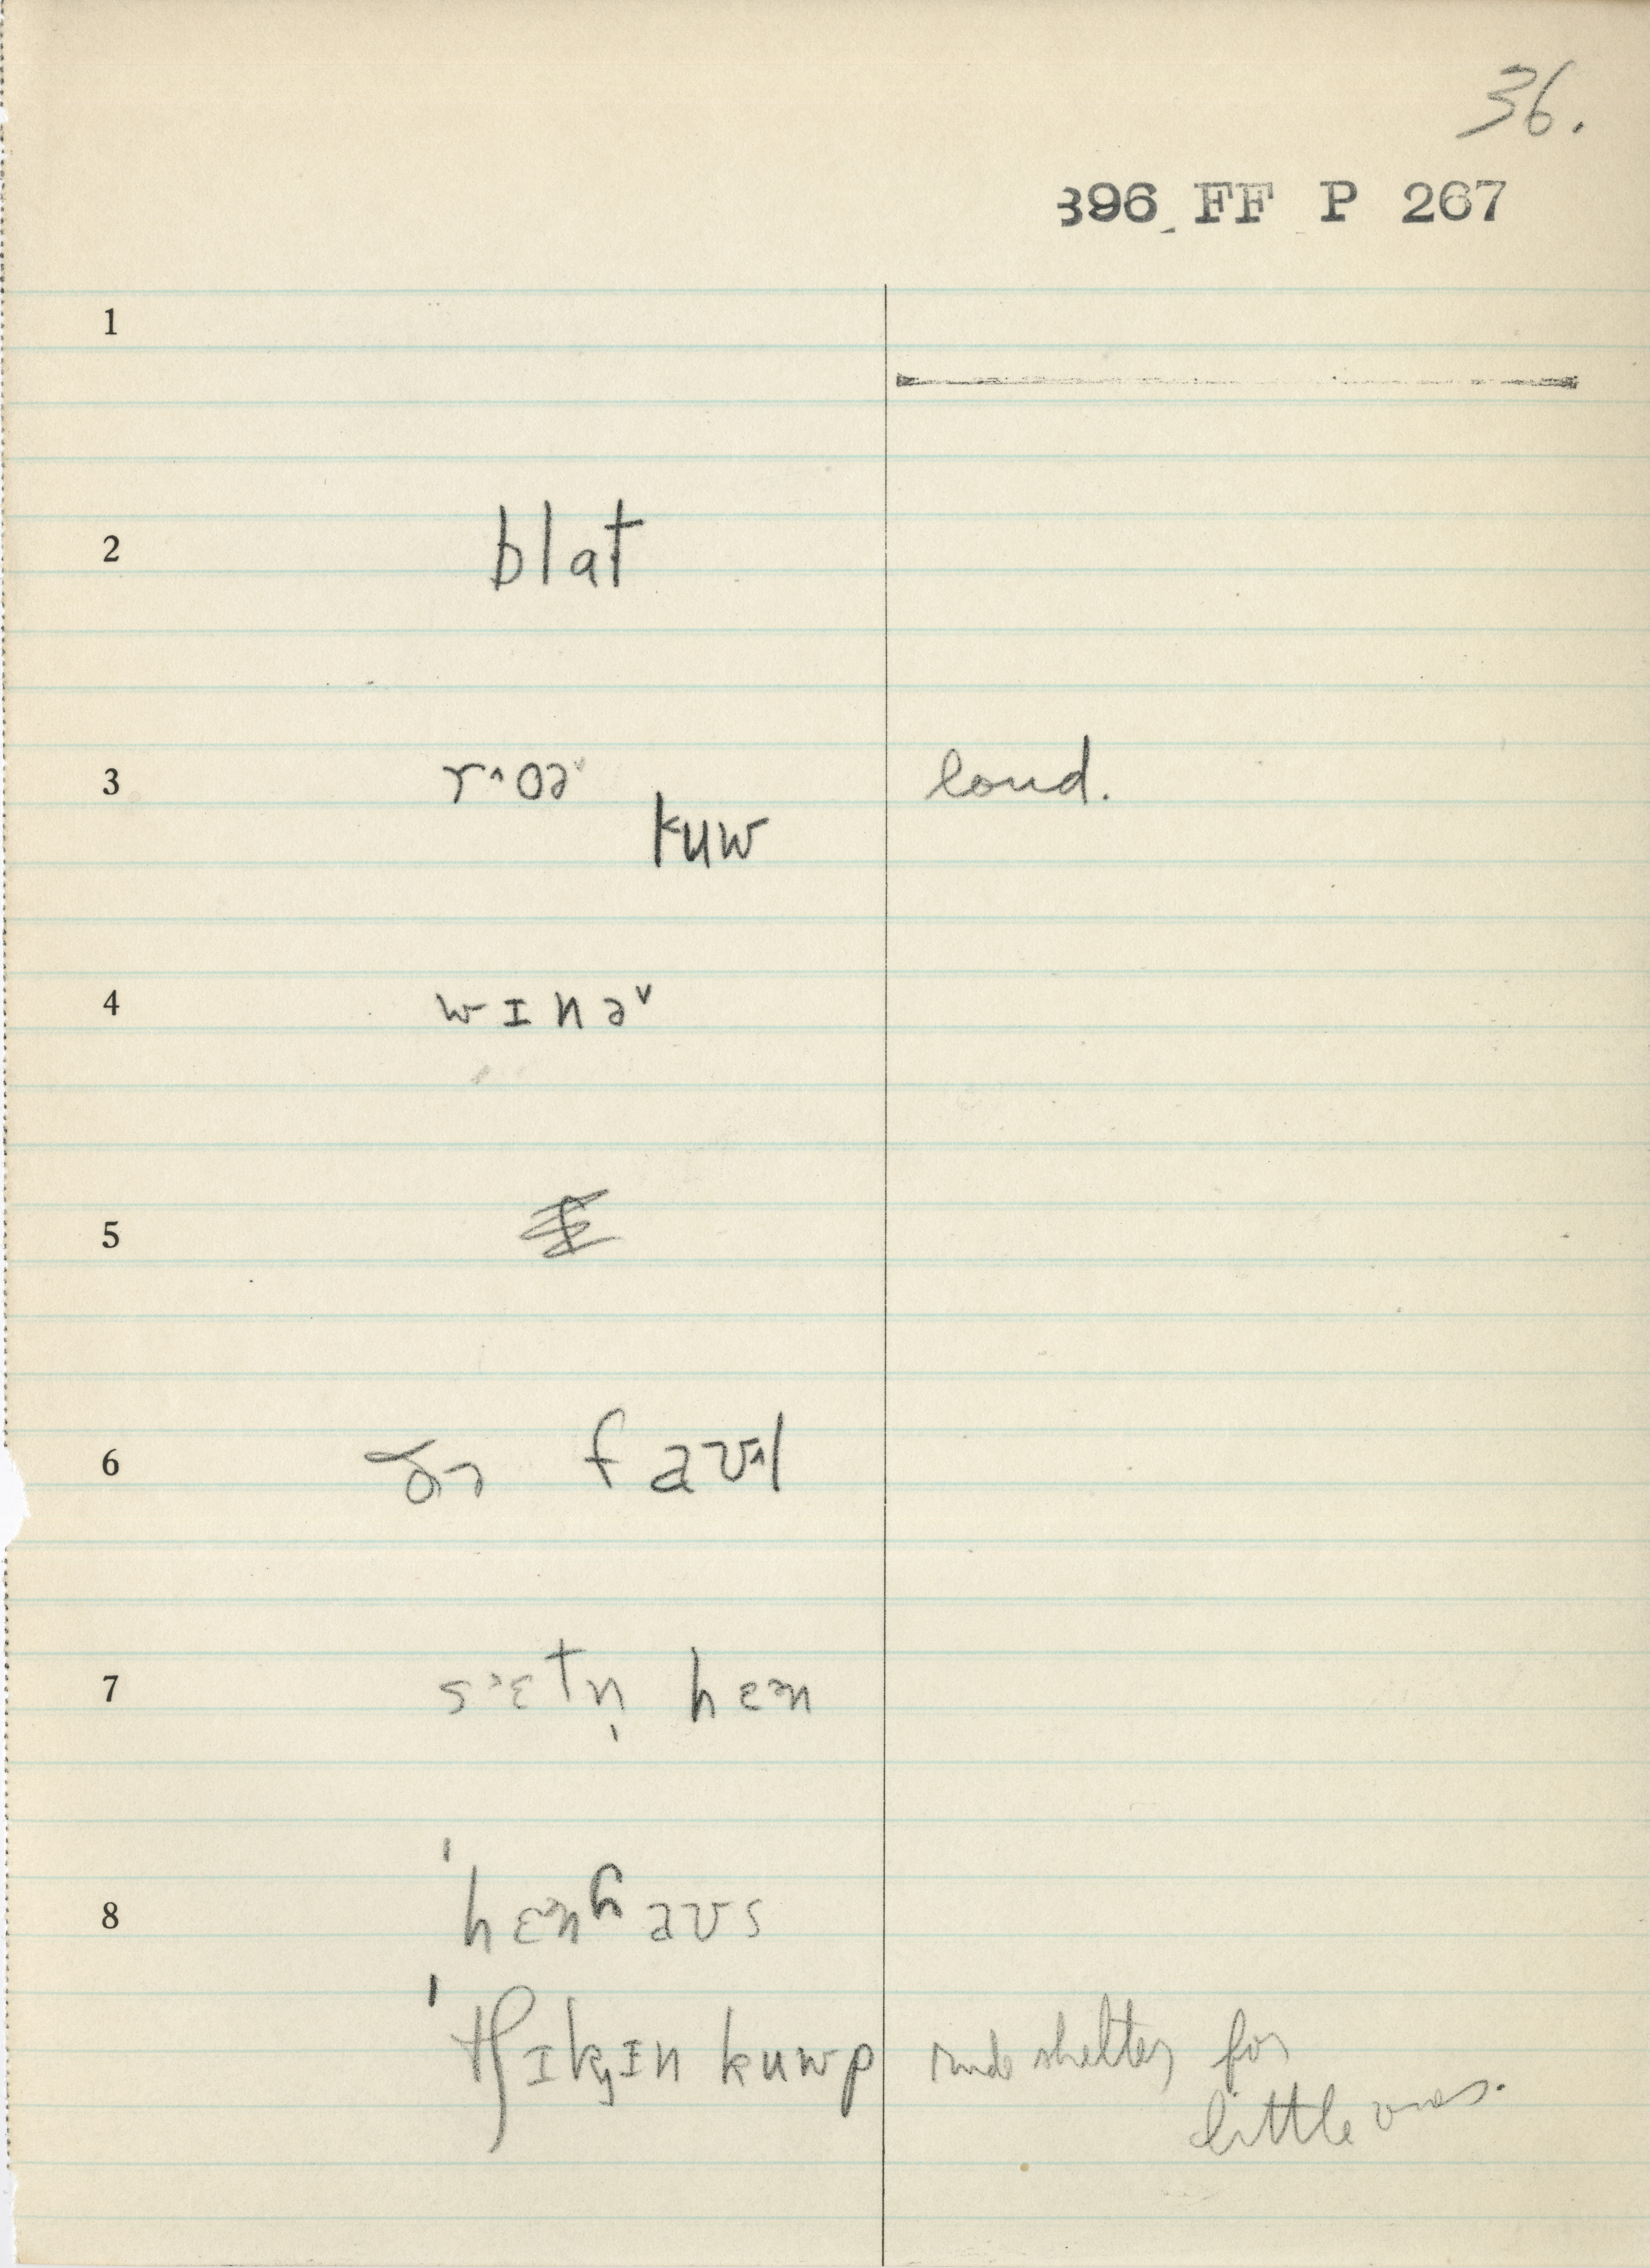 36.
396 FF P 267
1
2 blat
3 r^oə˅ loud.
kuw
4 wɪnə˅
5
6 ðə faʊ^l
7 s˃ɛtn̩ hɛ˃n
8 ˈhɛ˃nhaʊs
ˈtʃɪkɪ̨n kuwp rude shelter for
little ones.